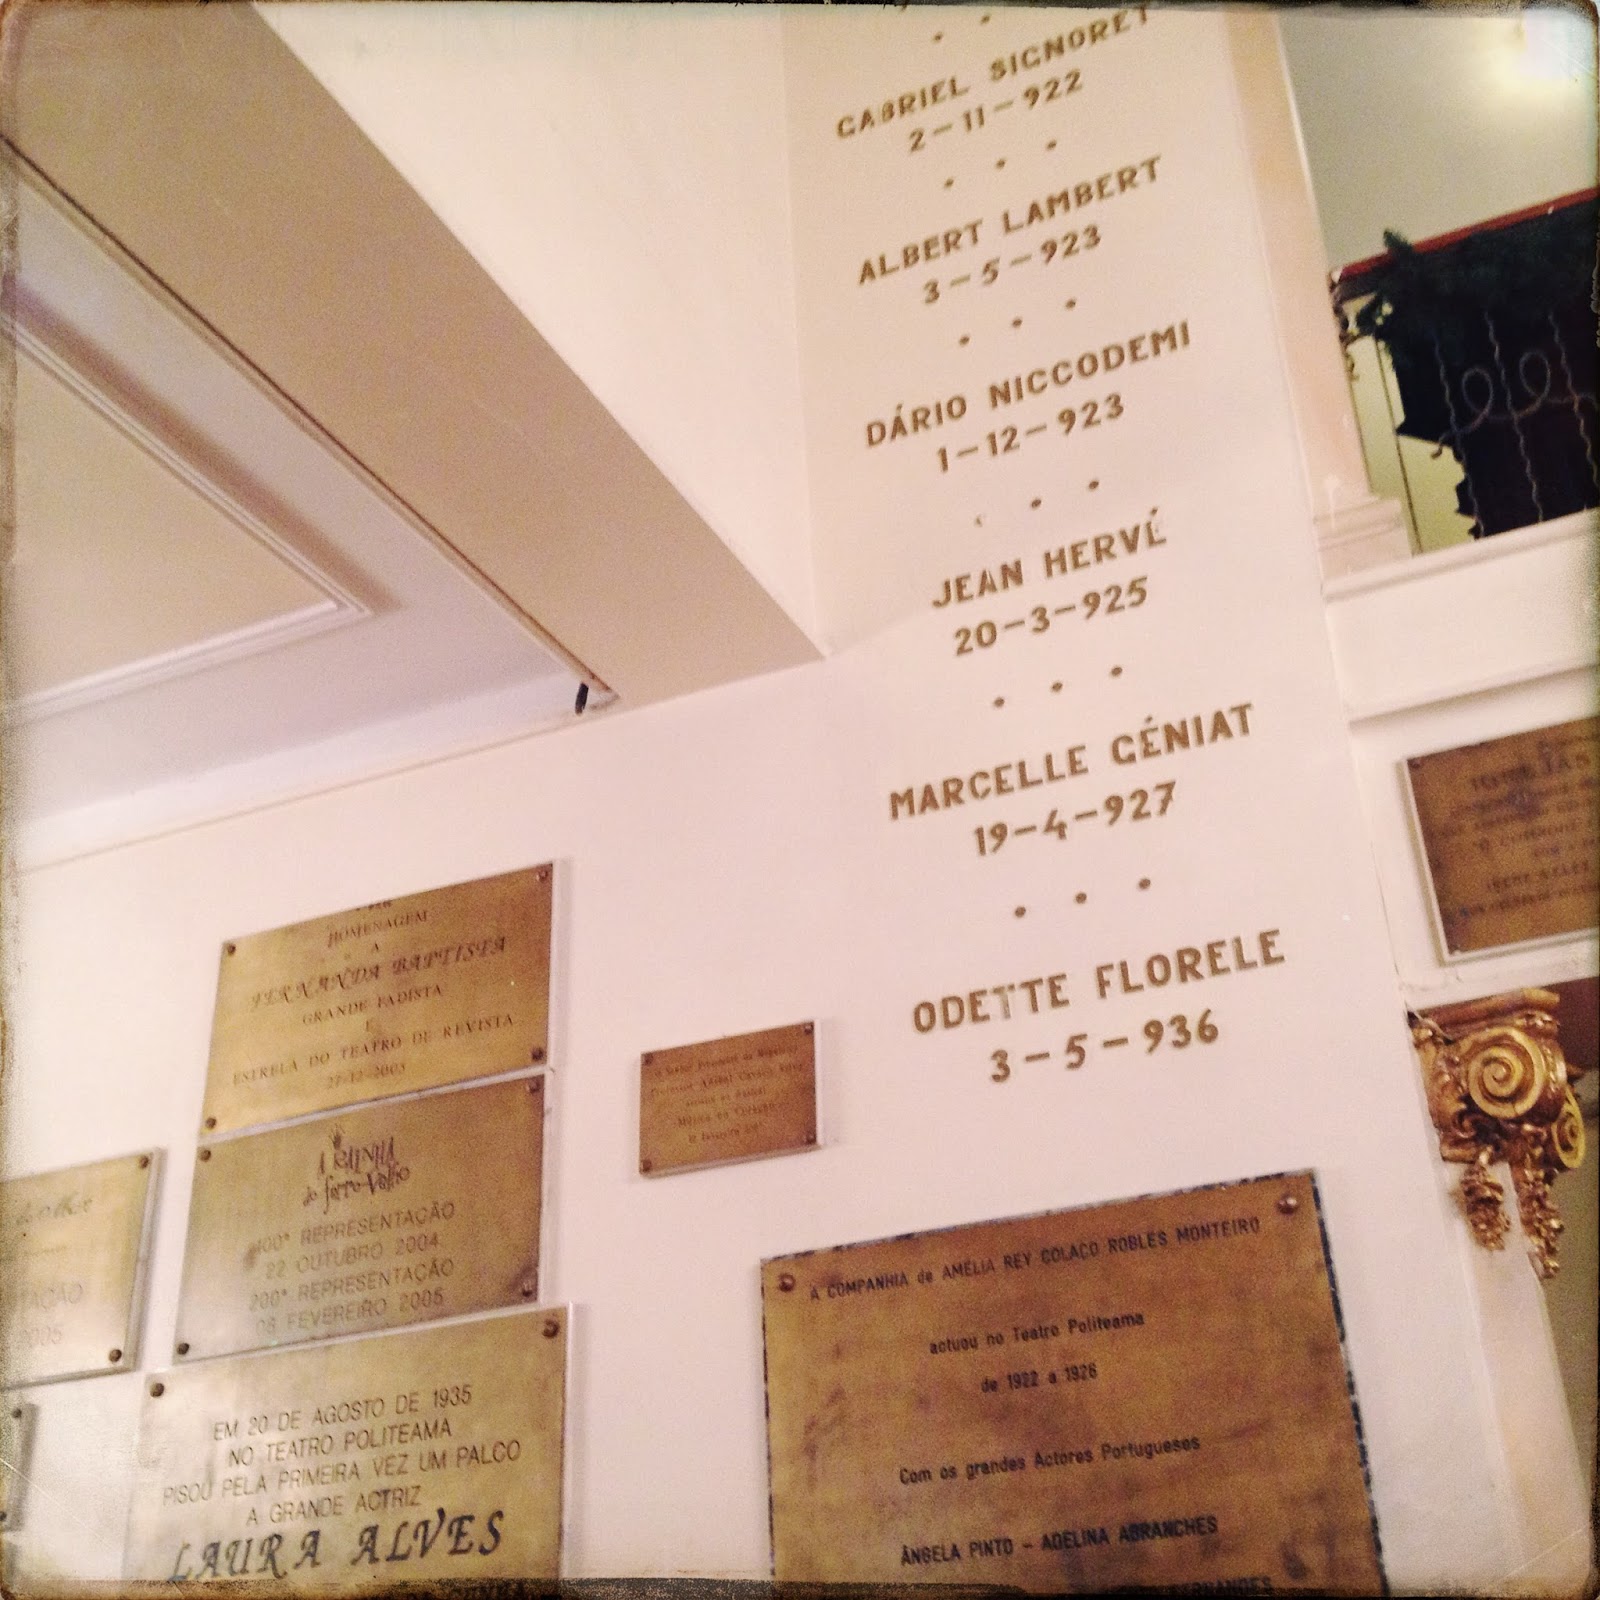 GABRIEL SIGNORET
2-11-922
ALBERT LAMBERT
3-5-923
DÁRIO NICCODEMI
1-12-923
JEAN HERVÉ
20-3-925
MARCELLE GÉNIAT
19-4-927
ODETTE FLORELE
3-5-936
HOMENAGEM
A
FERNANDA BAPTISTA
GRANDE FADISTA
E
ESTRELA DO TEATRO DE REVISTA
A RAINHA
do ferro-velho
100ª REPRESENTAÇÃO
22 OUTUBRO 2004
200ª REPRESENTAÇÃO
FEVEREIRO 2005
2005
EM 20 DE AGOSTO DE 1935
NO TEATRO POLITEAMA
PISOU PELA PRIMEIRA VEZ UM PALCO
A GRANDE ACTRIZ
LAURA ALVES
A COMPANHIA de AMÉLIA REY COLAÇO ROBLES MONTEIRO
actuou no Teatro Politeama
de 1922 a 1926
Com os grandes Actores Portugueses
ÂNGELA PINTO - ADELINA ABRANCHES